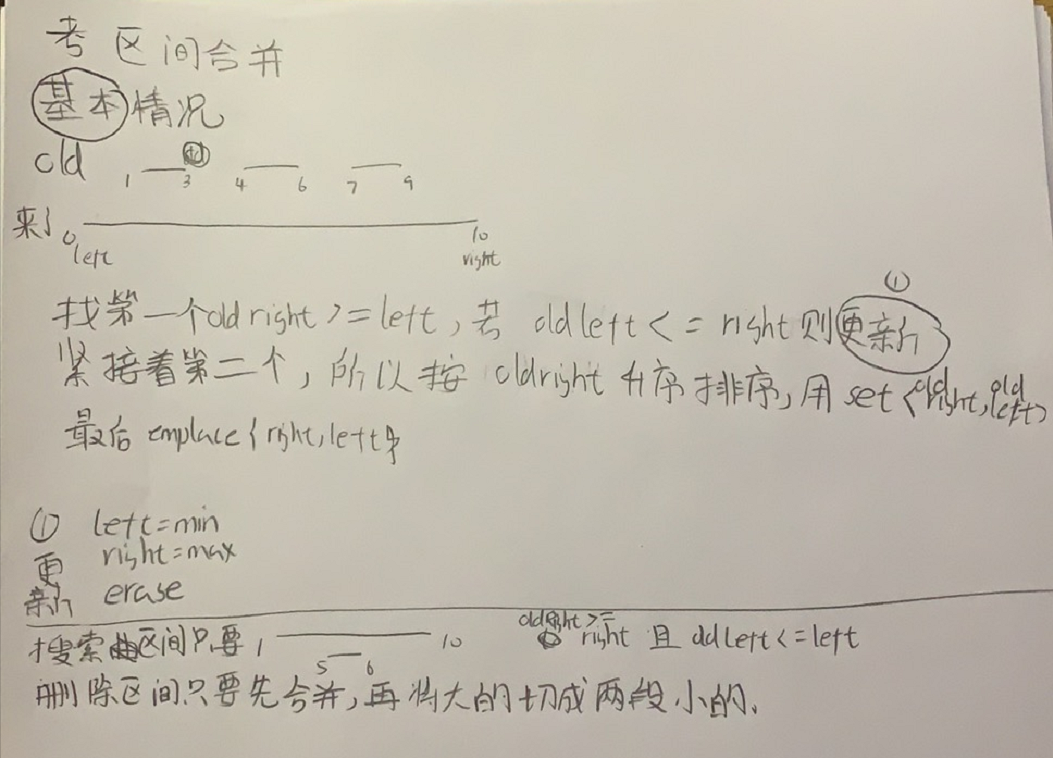 考区间合并
基本情况
old 1 3 4 6 7 9
来了 0 10
left right
①
找第一个old right >= left, 若 old left <= right 则更新
紧接着第二个, 所以按 old right 升序排序, 用 set <old right, old left>
最后 emplace{right, left}
① left=min
更 right=max
新 erase
搜索区间只要 1 10 old right >= right 且 old left <= left
5 6
删除区间只要先合并, 再将大的切成两段小的.